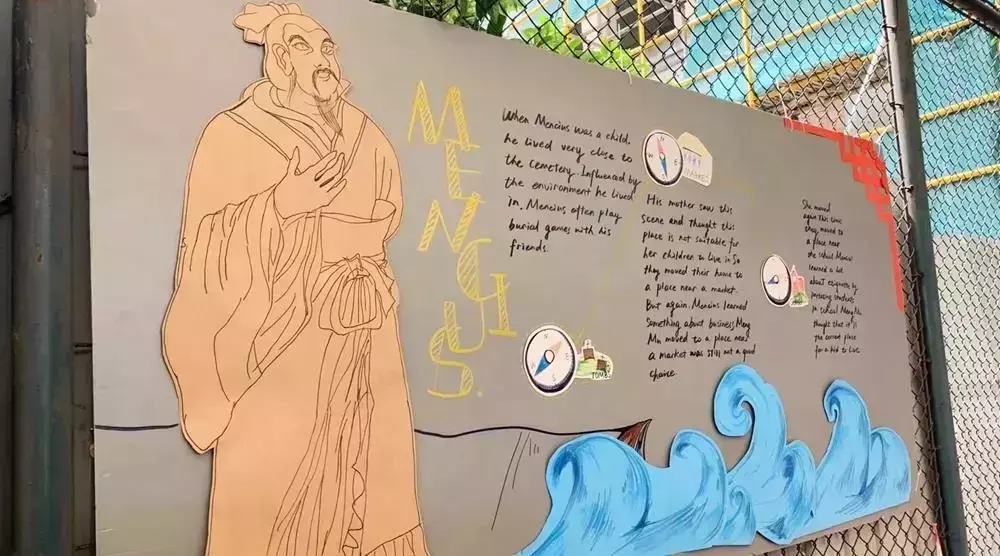 MENCIUS.
When Mencius was a child,
he lived very close to
the cemetery. Influenced by
the environment he lived
in. Mencius often play
burial games with his
friends.
TOMB
MARKET
His mother saw this
scene and thought this
place is not suitable for
her children to live in So
they moved their home to
a place near a market.
But again. Mencius learned
something about business, Meng
Mu moved to a place near
a market was still not a good
choice.
She moved
again This time
they moved to
a place near
the school Mencius
learned a lot
about etiquette by
students
in school Meng Mu
thought that it is
the correct place
for a kid to live.